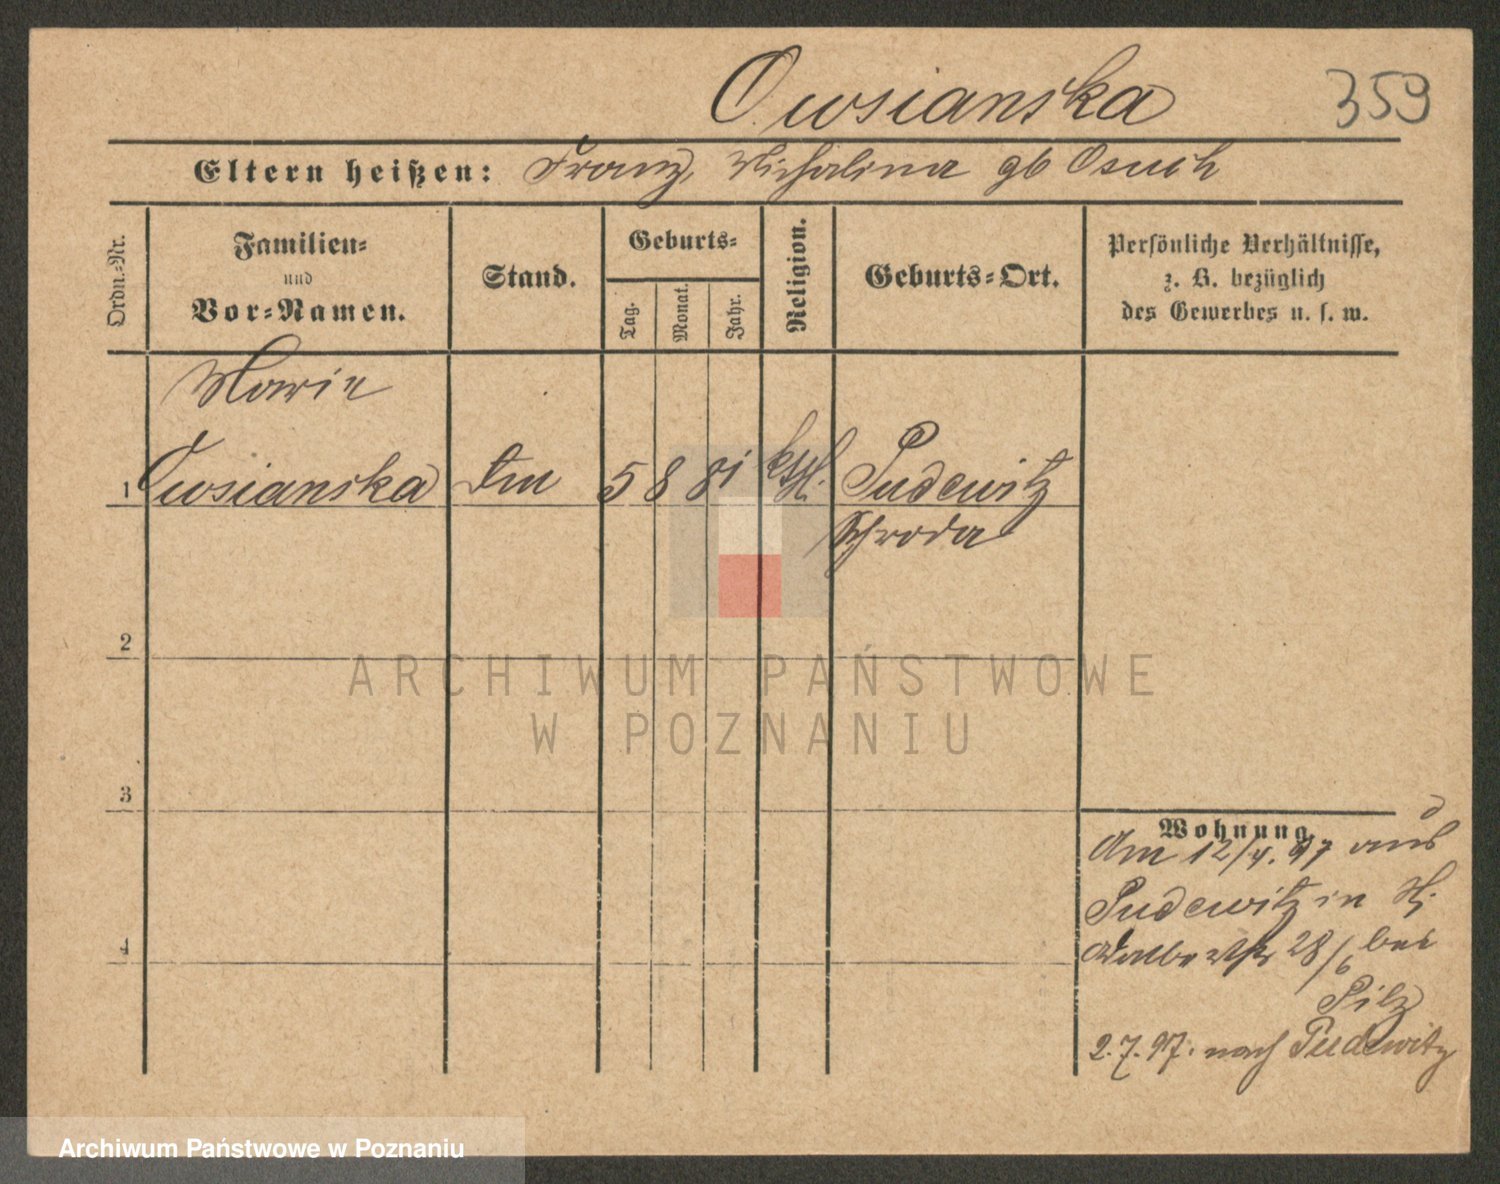 Owsianska 359
Eltern heißen: Franz, Michalina gb Osuch
Ordn.-Nr.
Familien-
und
Vor-Namen.
Stand.
Geburts-
Tag. Monat. Jahr.
Religion.
Geburts-Ort.
Persönliche Verhältnisse,
z. B. bezüglich
des Gewerbes u. s. w.
Marie
1 Owsianska 5 8 81 kth. Pudewitz
Schroda
2
3
4
Wohnung
Am 12/4. 97 aus
Pudewitz in
28/6 bei
Pilz
2.7.97. nach Pudewitz
ARCHIWUM PAŃSTWOWE
W POZNANIU
Archiwum Państwowe w Poznaniu